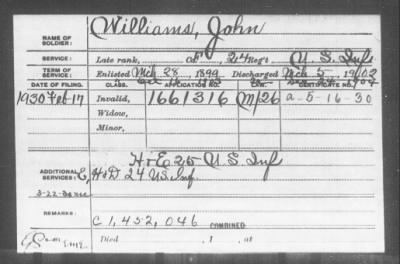 Williams, John
NAME OF SOLDIER:
SERVICE: Late rank, of 24 Reg't U.S. Inf
TERM OF SERVICE: Enlisted Mch 28, 1899 Discharged Mch 5, 1902
DATE OF FILING. CLASS. APPLICATION NO. LAW. CERTIFICATE NO.
1930 Feb 17 Invalid, 1661316 M/26 a-5-16-30
Widow,
Minor,
H & E 25 U.S. Inf
ADDITIONAL SERVICES: E, H & D 24 U.S. Inf.
3-22-30
REMARKS: C 1,452,046 COMBINED
Died , 1 , at